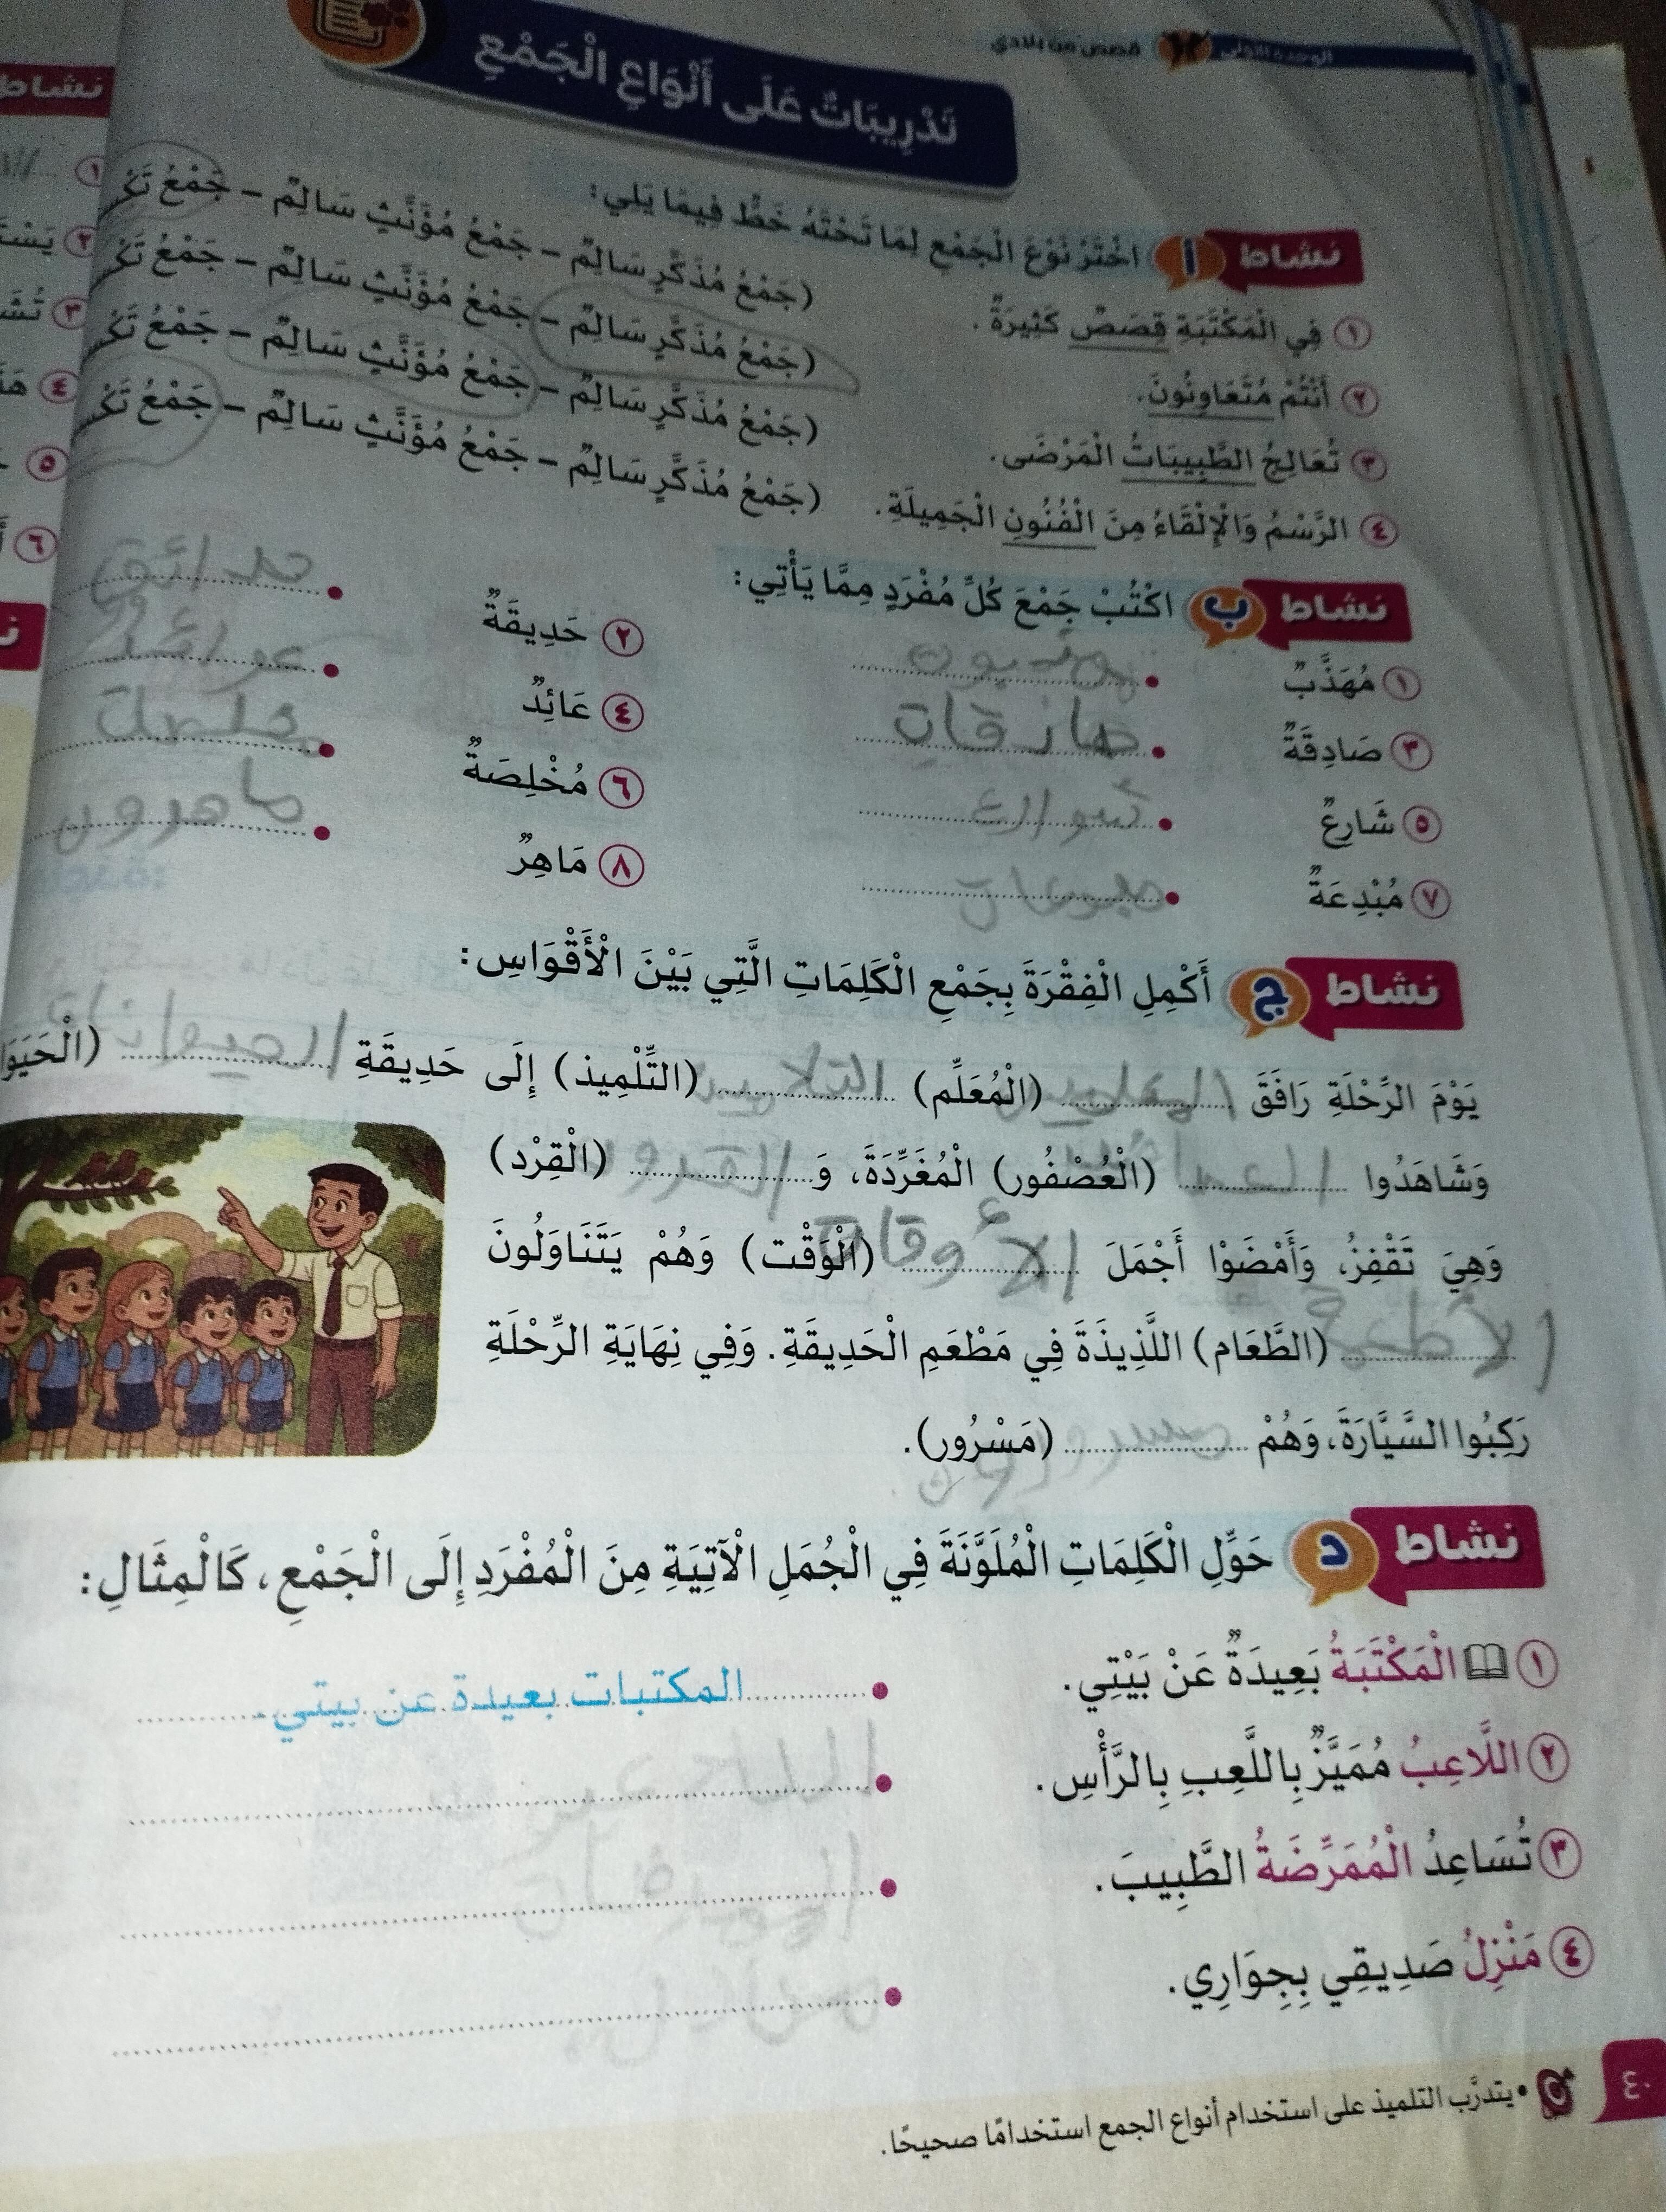 الوحدة الأولى قصص من بلادي
تَدْرِيبَاتٌ عَلَى أَنْوَاعِ الْجَمْعِ
نشاط أ اخْتَرْ نَوْعَ الْجَمْعِ لِمَا تَحْتَهُ خَطٌّ فِيمَا يَلِي:
١ فِي الْمَكْتَبَةِ قِصَصٌ كَثِيرَةٌ. (جَمْعُ مُذَكَّرٍ سَالِمٌ – جَمْعُ مُؤَنَّثٍ سَالِمٌ – جَمْعُ
٢ أَنْتُمْ مُتَعَاوِنُونَ. (جَمْعُ مُذَكَّرٍ سَالِمٌ – جَمْعُ مُؤَنَّثٍ سَالِمٌ – جَمْعُ
٣ تُعَالِجُ الطَّبِيبَاتُ الْمَرْضَى. (جَمْعُ مُذَكَّرٍ سَالِمٌ – جَمْعُ مُؤَنَّثٍ سَالِمٌ – جَمْعُ
٤ الرَّسْمُ وَالْإِلْقَاءُ مِنَ الْفُنُونِ الْجَمِيلَةِ. (جَمْعُ مُذَكَّرٍ سَالِمٌ – جَمْعُ مُؤَنَّثٍ سَالِمٌ – جَمْعُ
نشاط ب اكْتُبْ جَمْعَ كُلِّ مُفْرَدٍ مِمَّا يَأْتِي:
١ مُهَذَّبٌ ٢ حَدِيقَةٌ حدائق
٣ صَادِقَةٌ ٤ عَائِدٌ
٥ شَارِعٌ شوارع ٦ مُخْلِصَةٌ
٧ مُبْدِعَةٌ ٨ مَاهِرٌ ماهرون
نشاط ج أَكْمِلِ الْفِقْرَةَ بِجَمْعِ الْكَلِمَاتِ الَّتِي بَيْنَ الْأَقْوَاسِ:
يَوْمَ الرِّحْلَةِ رَافَقَ (الْمُعَلِّم) (التِّلْمِيذ) إِلَى حَدِيقَةِ الحيوانات
وَشَاهَدُوا (الْعُصْفُور) الْمُغَرِّدَةَ، وَ القرود (الْقِرْد)
وَهِيَ تَقْفِزُ، وَأَمْضَوْا أَجْمَلَ الأوقات (الْوَقْت) وَهُمْ يَتَنَاوَلُونَ
الأطعمة (الطَّعَام) اللَّذِيذَةَ فِي مَطْعَمِ الْحَدِيقَةِ. وَفِي نِهَايَةِ الرِّحْلَةِ
رَكِبُوا السَّيَّارَةَ، وَهُمْ (مَسْرُور).
نشاط د حَوِّلِ الْكَلِمَاتِ الْمُلَوَّنَةَ فِي الْجُمَلِ الْآتِيَةِ مِنَ الْمُفْرَدِ إِلَى الْجَمْعِ، كَالْمِثَالِ:
١ الْمَكْتَبَةُ بَعِيدَةٌ عَنْ بَيْتِي. المكتبات بعيدة عن بيتي.
٢ اللَّاعِبُ مُمَيَّزٌ بِاللَّعِبِ بِالرَّأْسِ.
٣ تُسَاعِدُ الْمُمَرِّضَةُ الطَّبِيبَ.
٤ مَنْزِلُ صَدِيقِي بِجِوَارِي.
٤٠ • يتدرَّب التلميذ على استخدام أنواع الجمع استخدامًا صحيحًا.